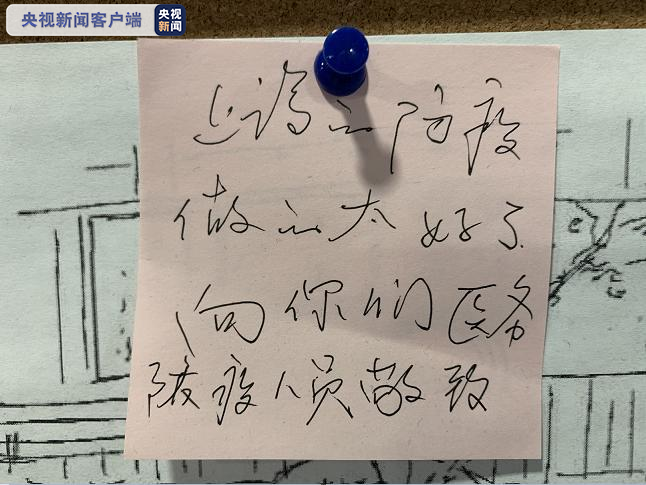 央视新闻客户端
央视
新闻
上海的防疫
做的太好了
向你们医务
防疫人员敬致